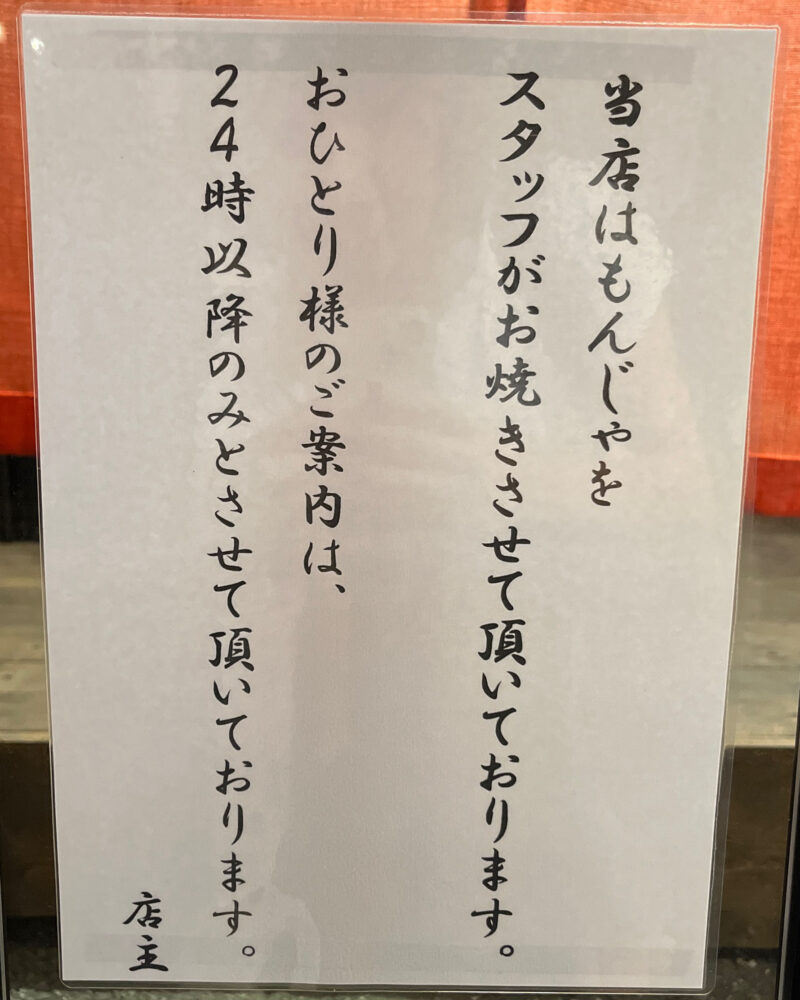 当店はもんじゃを
スタッフがお焼きさせて頂いております。
おひとり様のご案内は、
24時以降のみとさせて頂いております。
店主